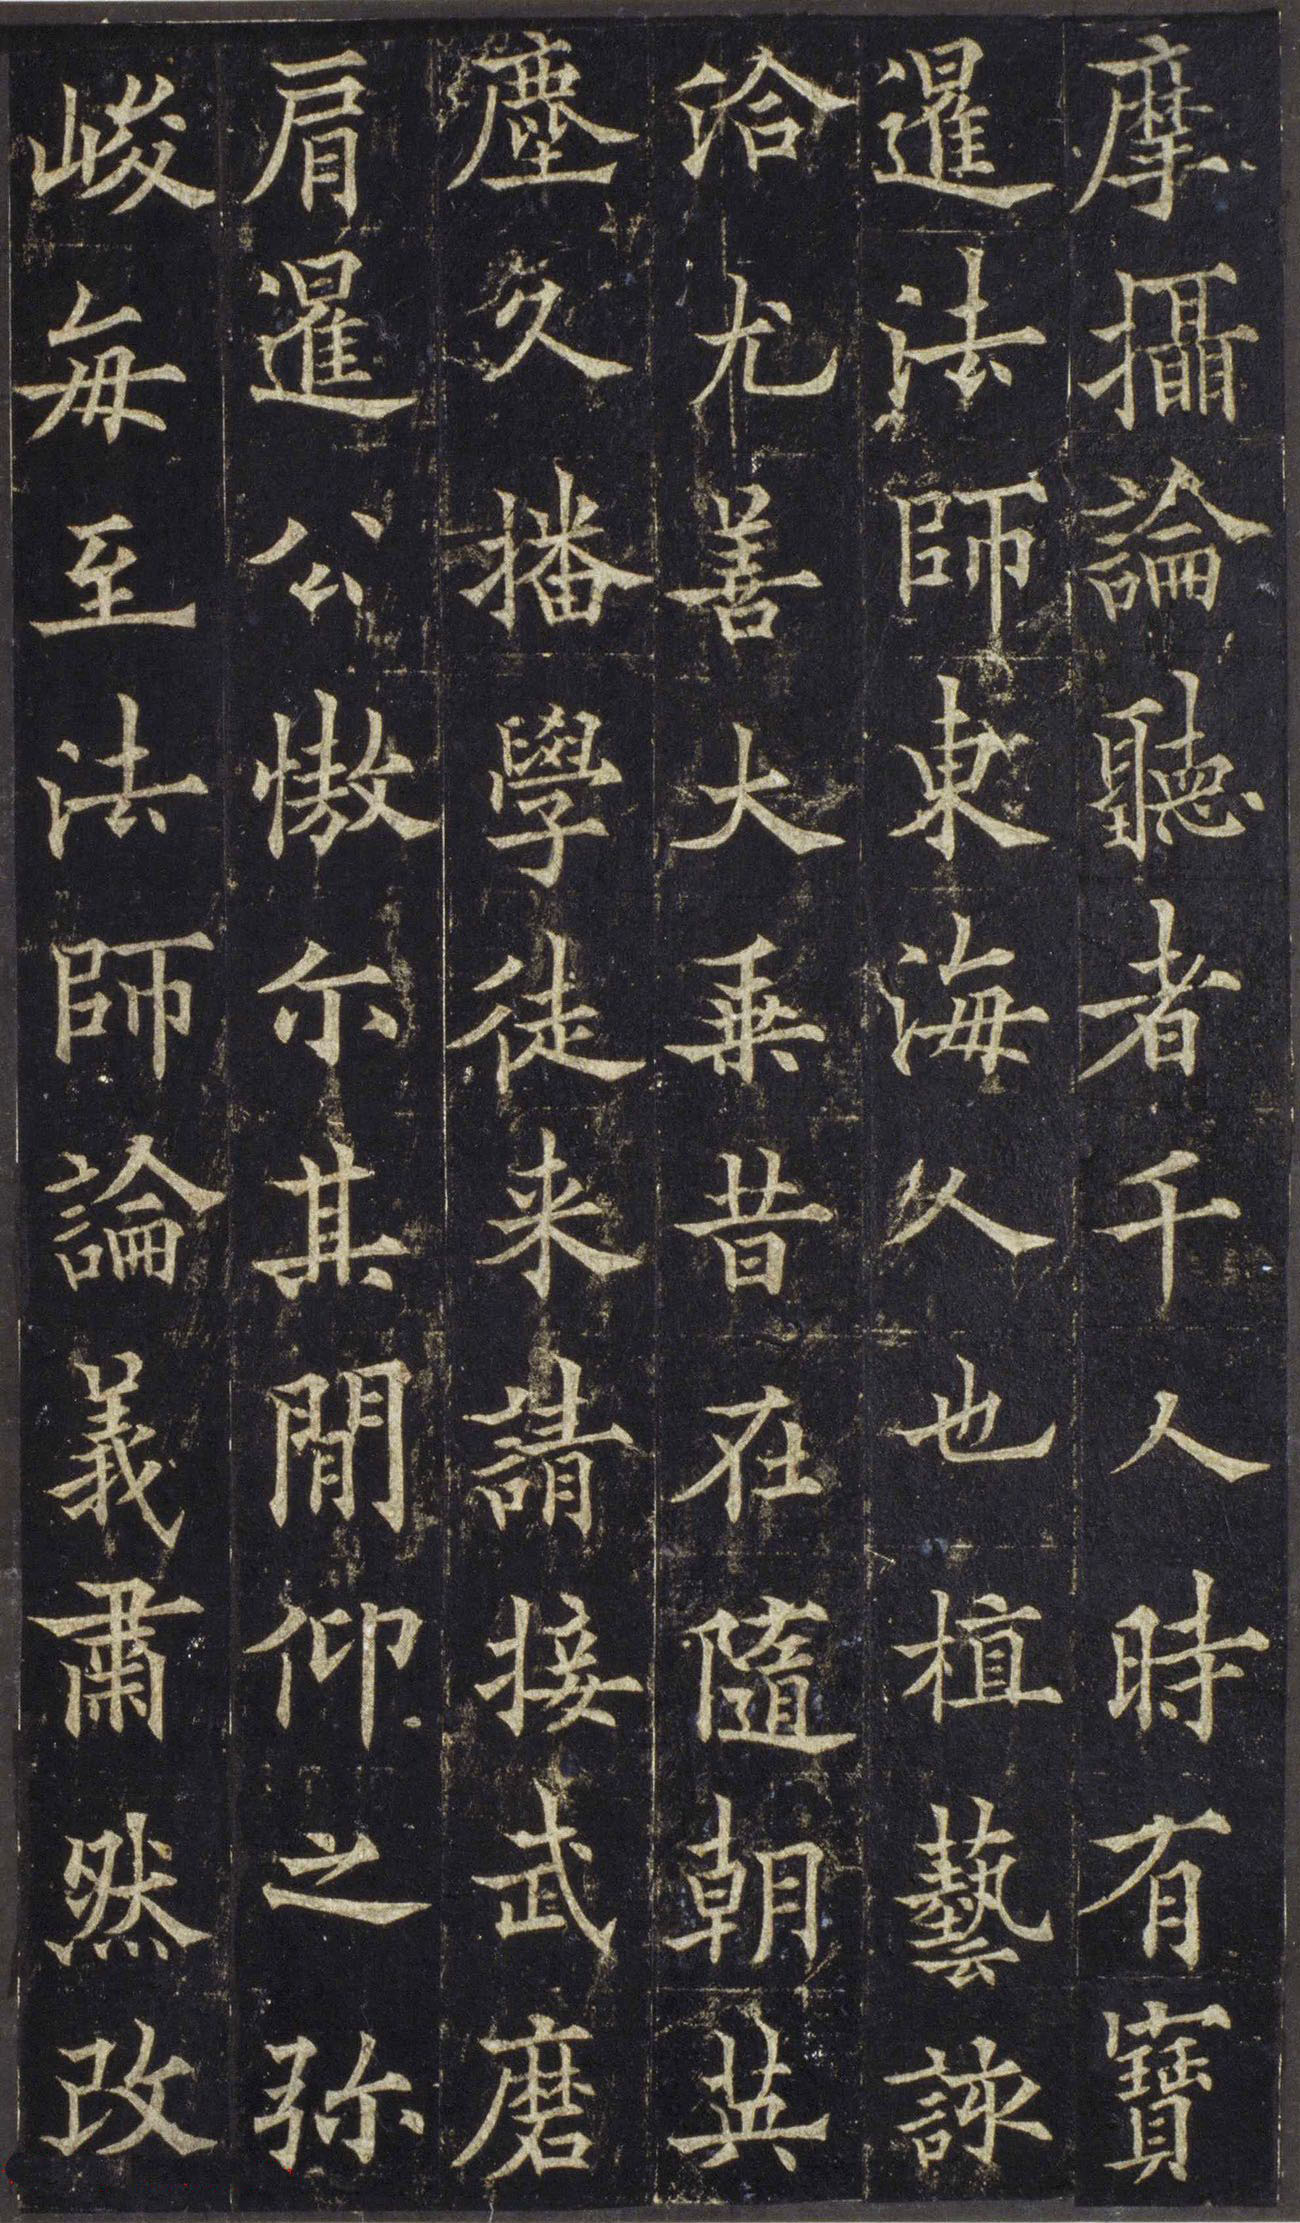 摩攝論聽者千人時有寶
暹法師東海人也植藝該
洽尤善大乘昔在隨朝英
塵久播學徒来請接武磨
肩暹公慠尒其閒仰之弥
峻每至法師論義肅然改